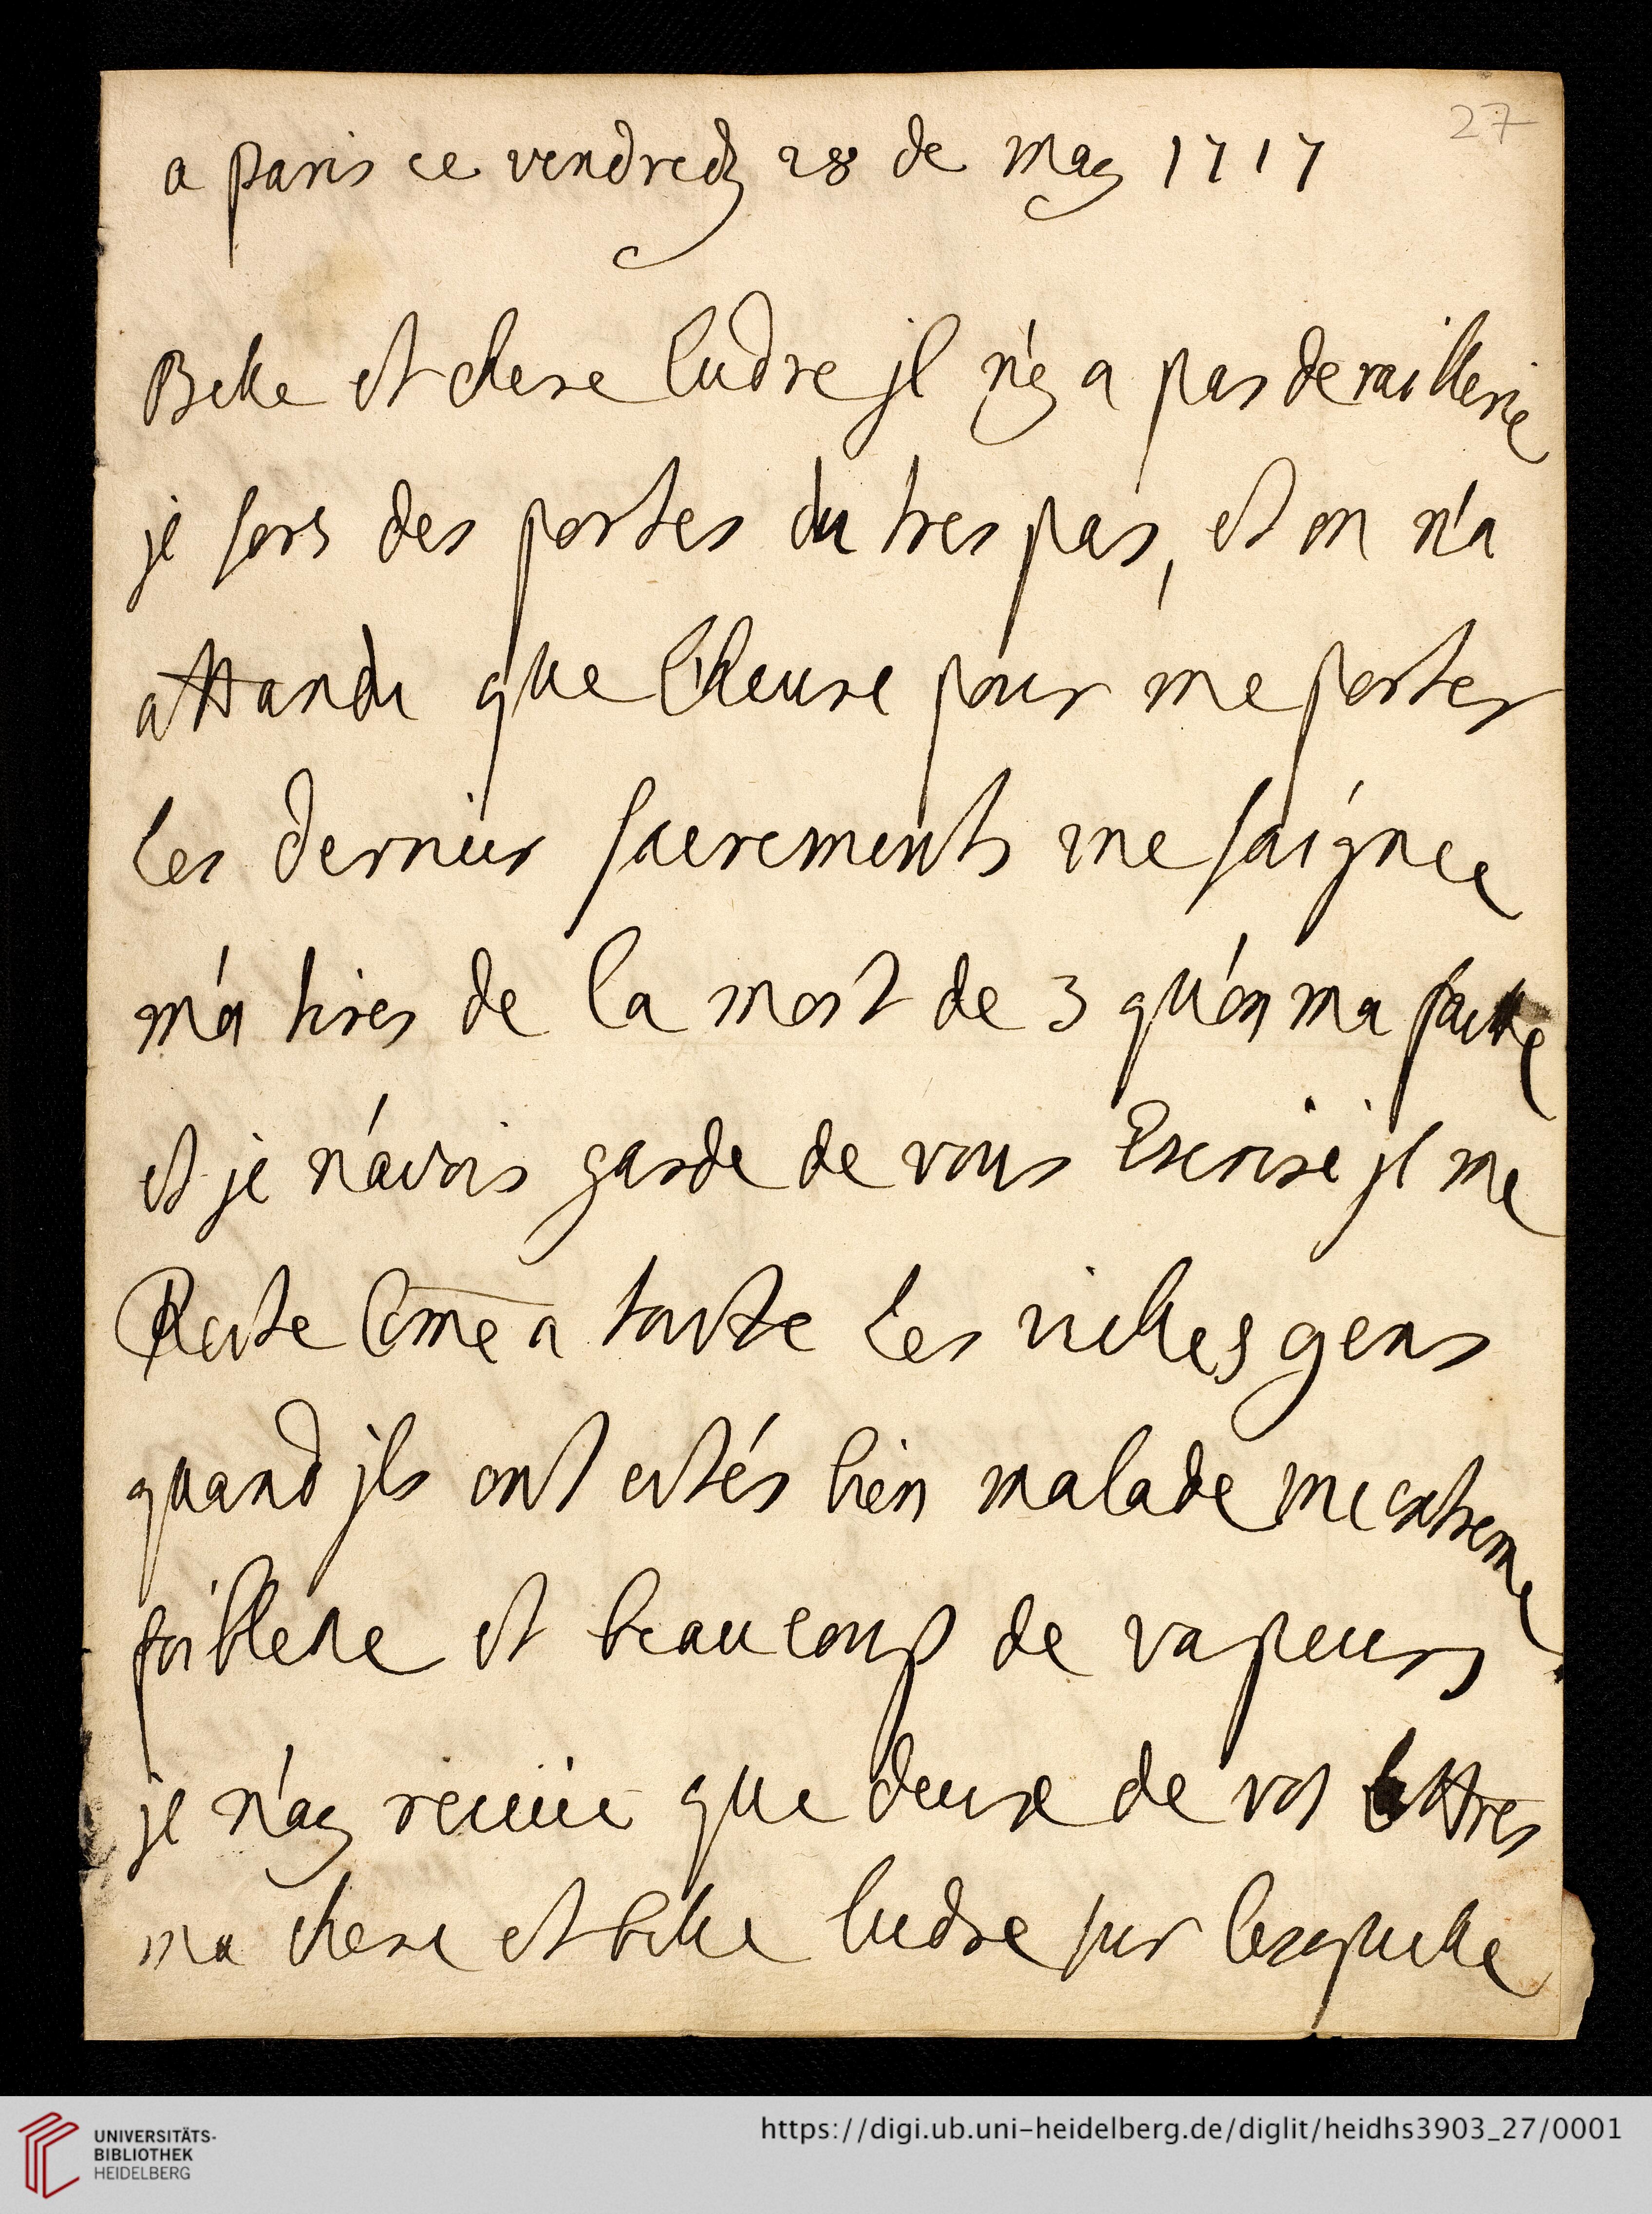 27
a paris ce vendredy 28 de may 1717
Belle et chere ludre jl n'y a pas de raillerie
je sors des portes du trespas, et on n'a
attandu que l'heure pour me porter
les dernier sacrements une saignee
m'a tires de la mort de 3 qu'on ma faitte
et je n'avois garde de vous Escrire jl me
Reste come a toutte les vielles gens
quand jls ont estés bien malade une extreme
foiblesse et beaucoup de vapeurs
je n'ay receüe que deux de vos lettres
ma chere et belle ludre sur lesquelle
UNIVERSITÄTS-
BIBLIOTHEK
HEIDELBERG
https://digi.ub.uni-heidelberg.de/diglit/heidhs3903_27/0001